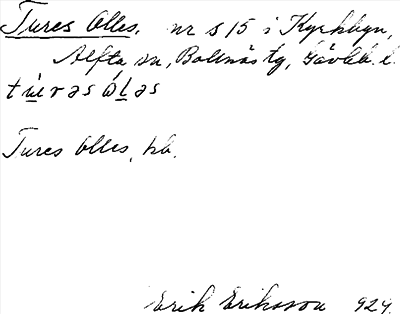 Tures Olles. nr s 15 i Kyrkbyn,
Alfta sn, Bollnäs tg, Gävleb. l.
tu̲rəs ól̲əs
Tures Olles, kb.
Erik Eriksson 924.